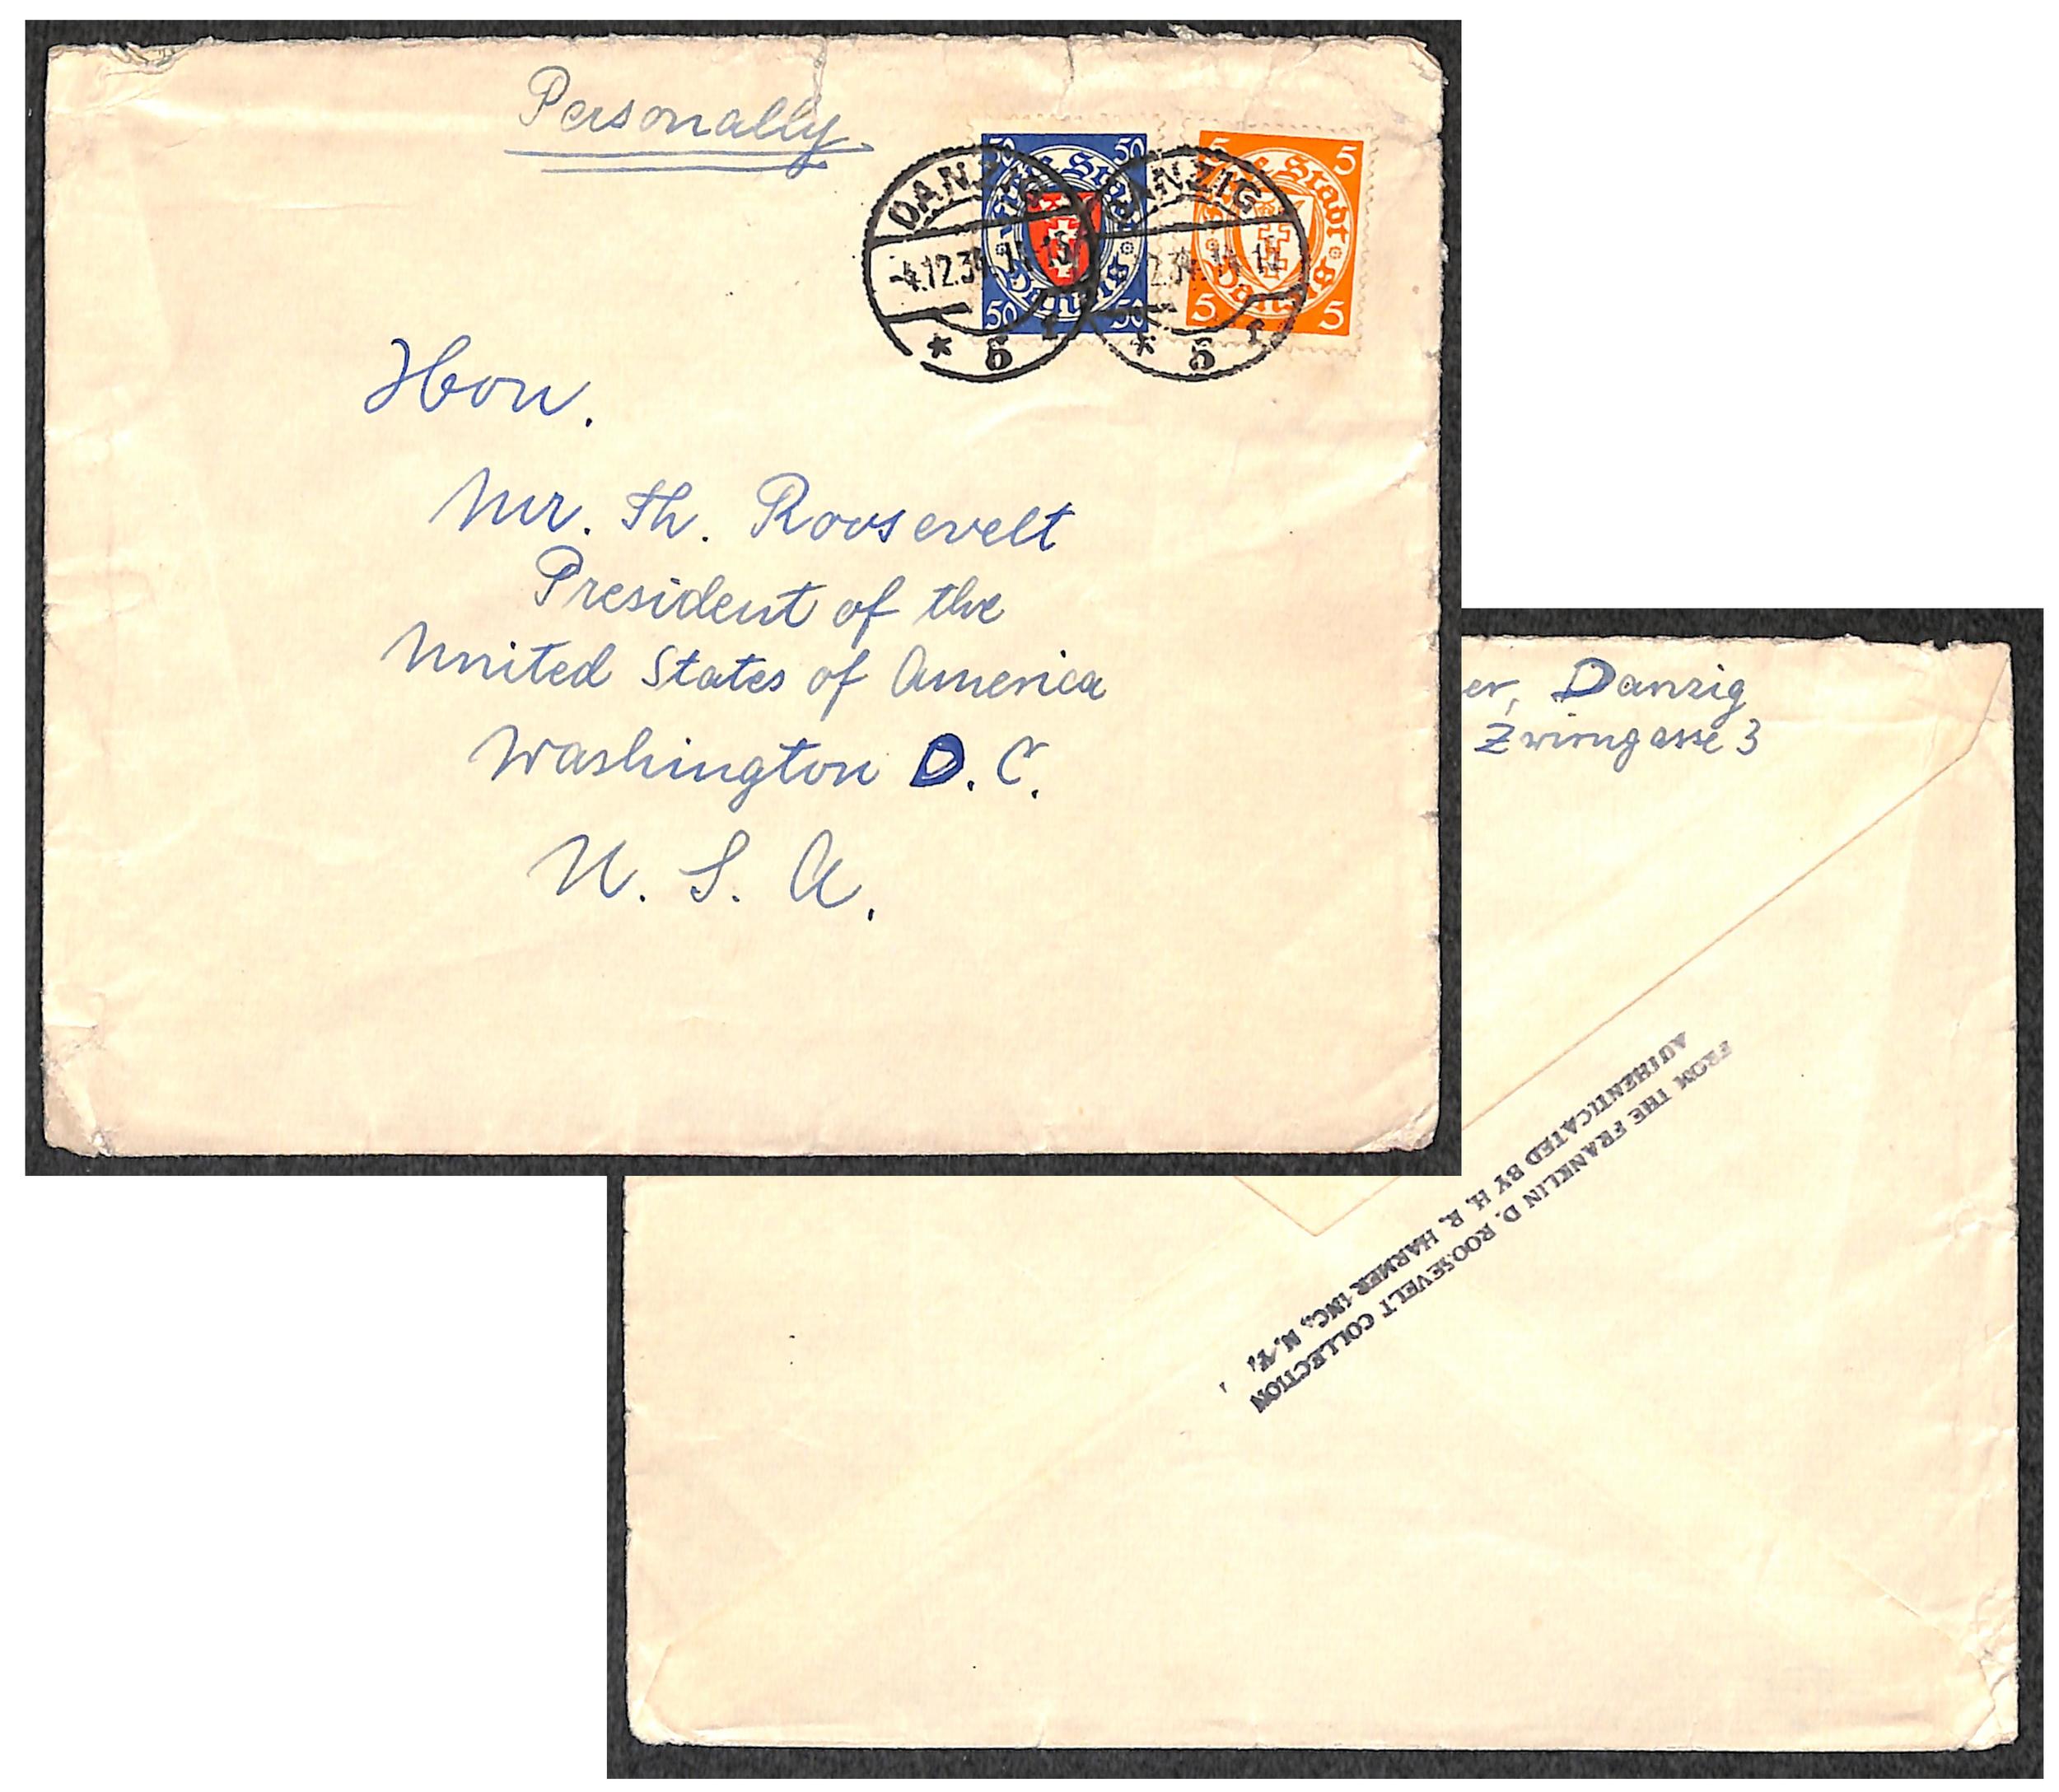 Personally
50 50
Freie Stadt
Danzig
50 50
5 5
Freie Stadt
Danzig
5 5
DANZIG
-4.12.34
* 5 r
DANZIG
* 5 r
Hon.
Mr. Th. Roosevelt
President of the
United States of America
Washington D.C.
U.S.A.
er, Danzig
Zwirngasse 3
FROM THE FRANKLIN D. ROOSEVELT COLLECTION
AUTHENTICATED BY H. R. HARMER INC. N.Y.